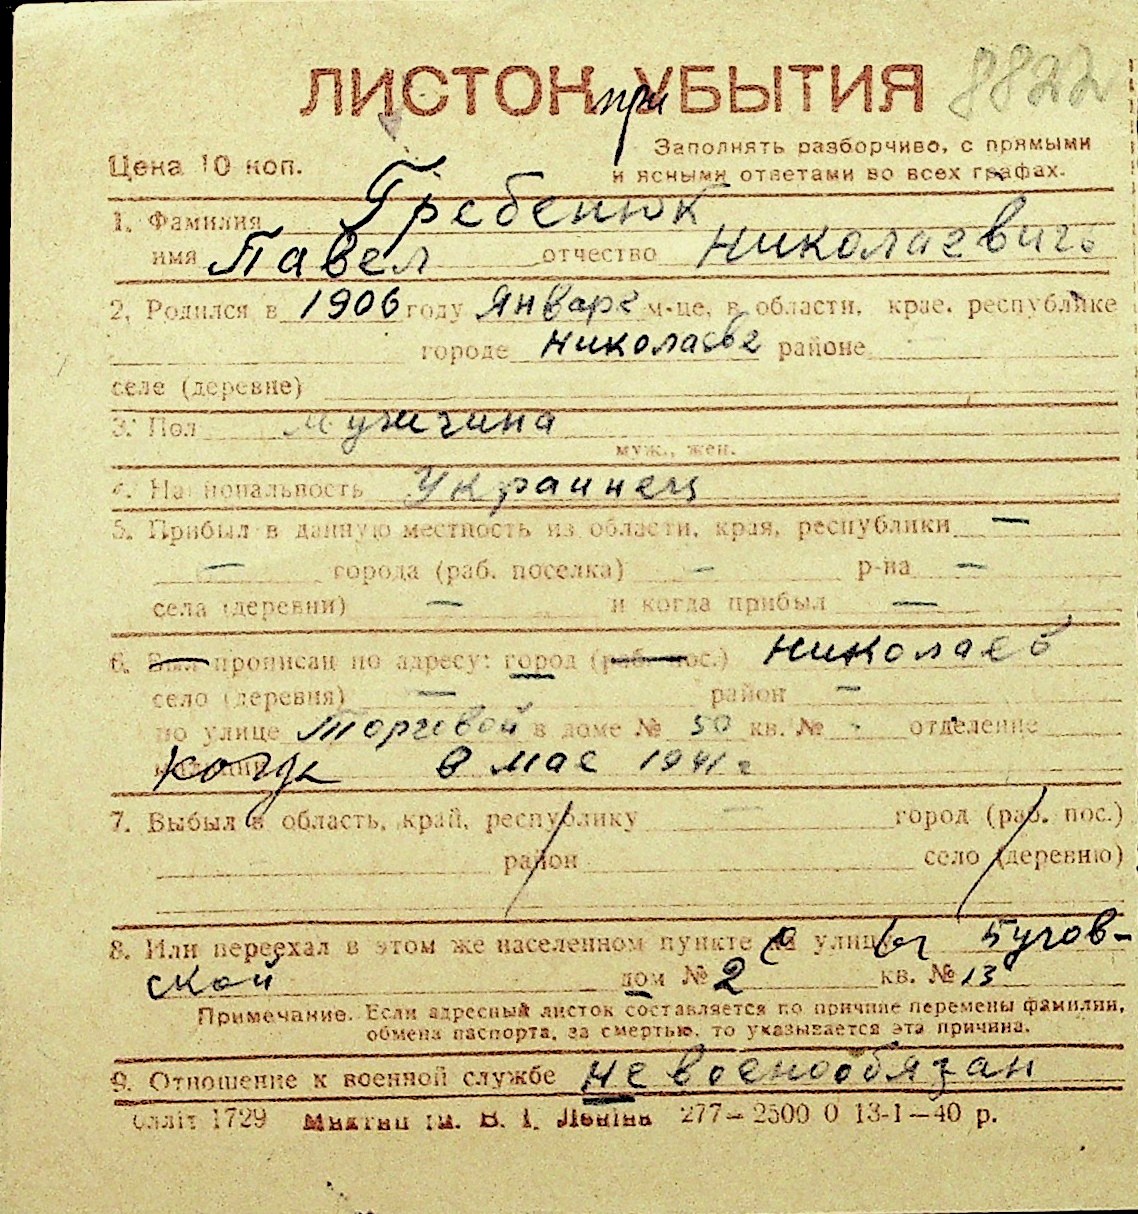 ЛИСТОК УБЫТИЯ 8822
при
Цена 10 коп. Заполнять разборчиво, с прямыми
и ясными ответами во всех графах.
1. Фамилия Гребенюк
имя Павел отчество Николаевичь
2. Родился в 1906 году Января м-це, в области, крае, республике
городе Николаеве районе
селе (деревне)
3. Пол мужичина
муж., жен.
4. Национальность Украинец
5. Прибыл в данную местность из области, края, республики —
— города (раб. поселка) — р-на —
села (деревни) — и когда прибыл —
6. Был прописан по адресу: город (раб. пос.) Николаев
село (деревня) — район —
по улице Торговой в доме № 50 кв. № - отделение
когда в мае 1941 г
7. Выбыл в область, край, республику — город (раб. пос.)
район село (деревню)
8. Или переехал в этом же населенном пункте с улицы Бугов-
ской дом № 2 кв. № 13
Примечание. Если адресный листок составляется по причине перемены фамилии,
обмена паспорта, за смертью, то указывается эта причина.
9. Отношение к военной службе не военообязан
1729 ім. В. І. Леніна 277—2500 0 13-1—40 р.